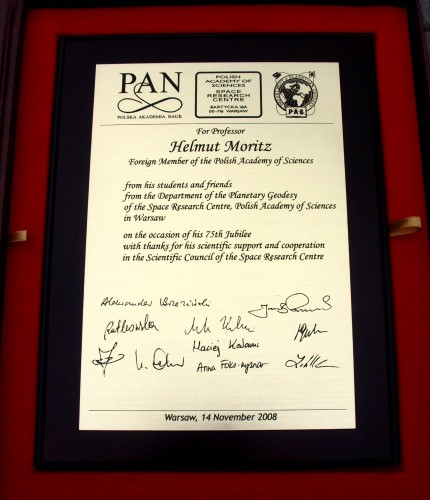 PAN
POLSKA AKADEMIA NAUK
POLISH
ACADEMY OF
SCIENCES
SPACE
RESEARCH
CENTRE
BARTYCKA 18A
00-716 WARSAW
P A S
For Professor
Helmut Moritz
Foreign Member of the Polish Academy of Sciences
from his students and friends
from the Department of the Planetary Geodesy
of the Space Research Centre, Polish Academy of Sciences
in Warsaw
on the occasion of his 75th Jubilee
with thanks for his scientific support and cooperation
in the Scientific Council of the Space Research Centre
Aleksander Brzeziński
Maciej Kalarus
Anna
Warsaw, 14 November 2008